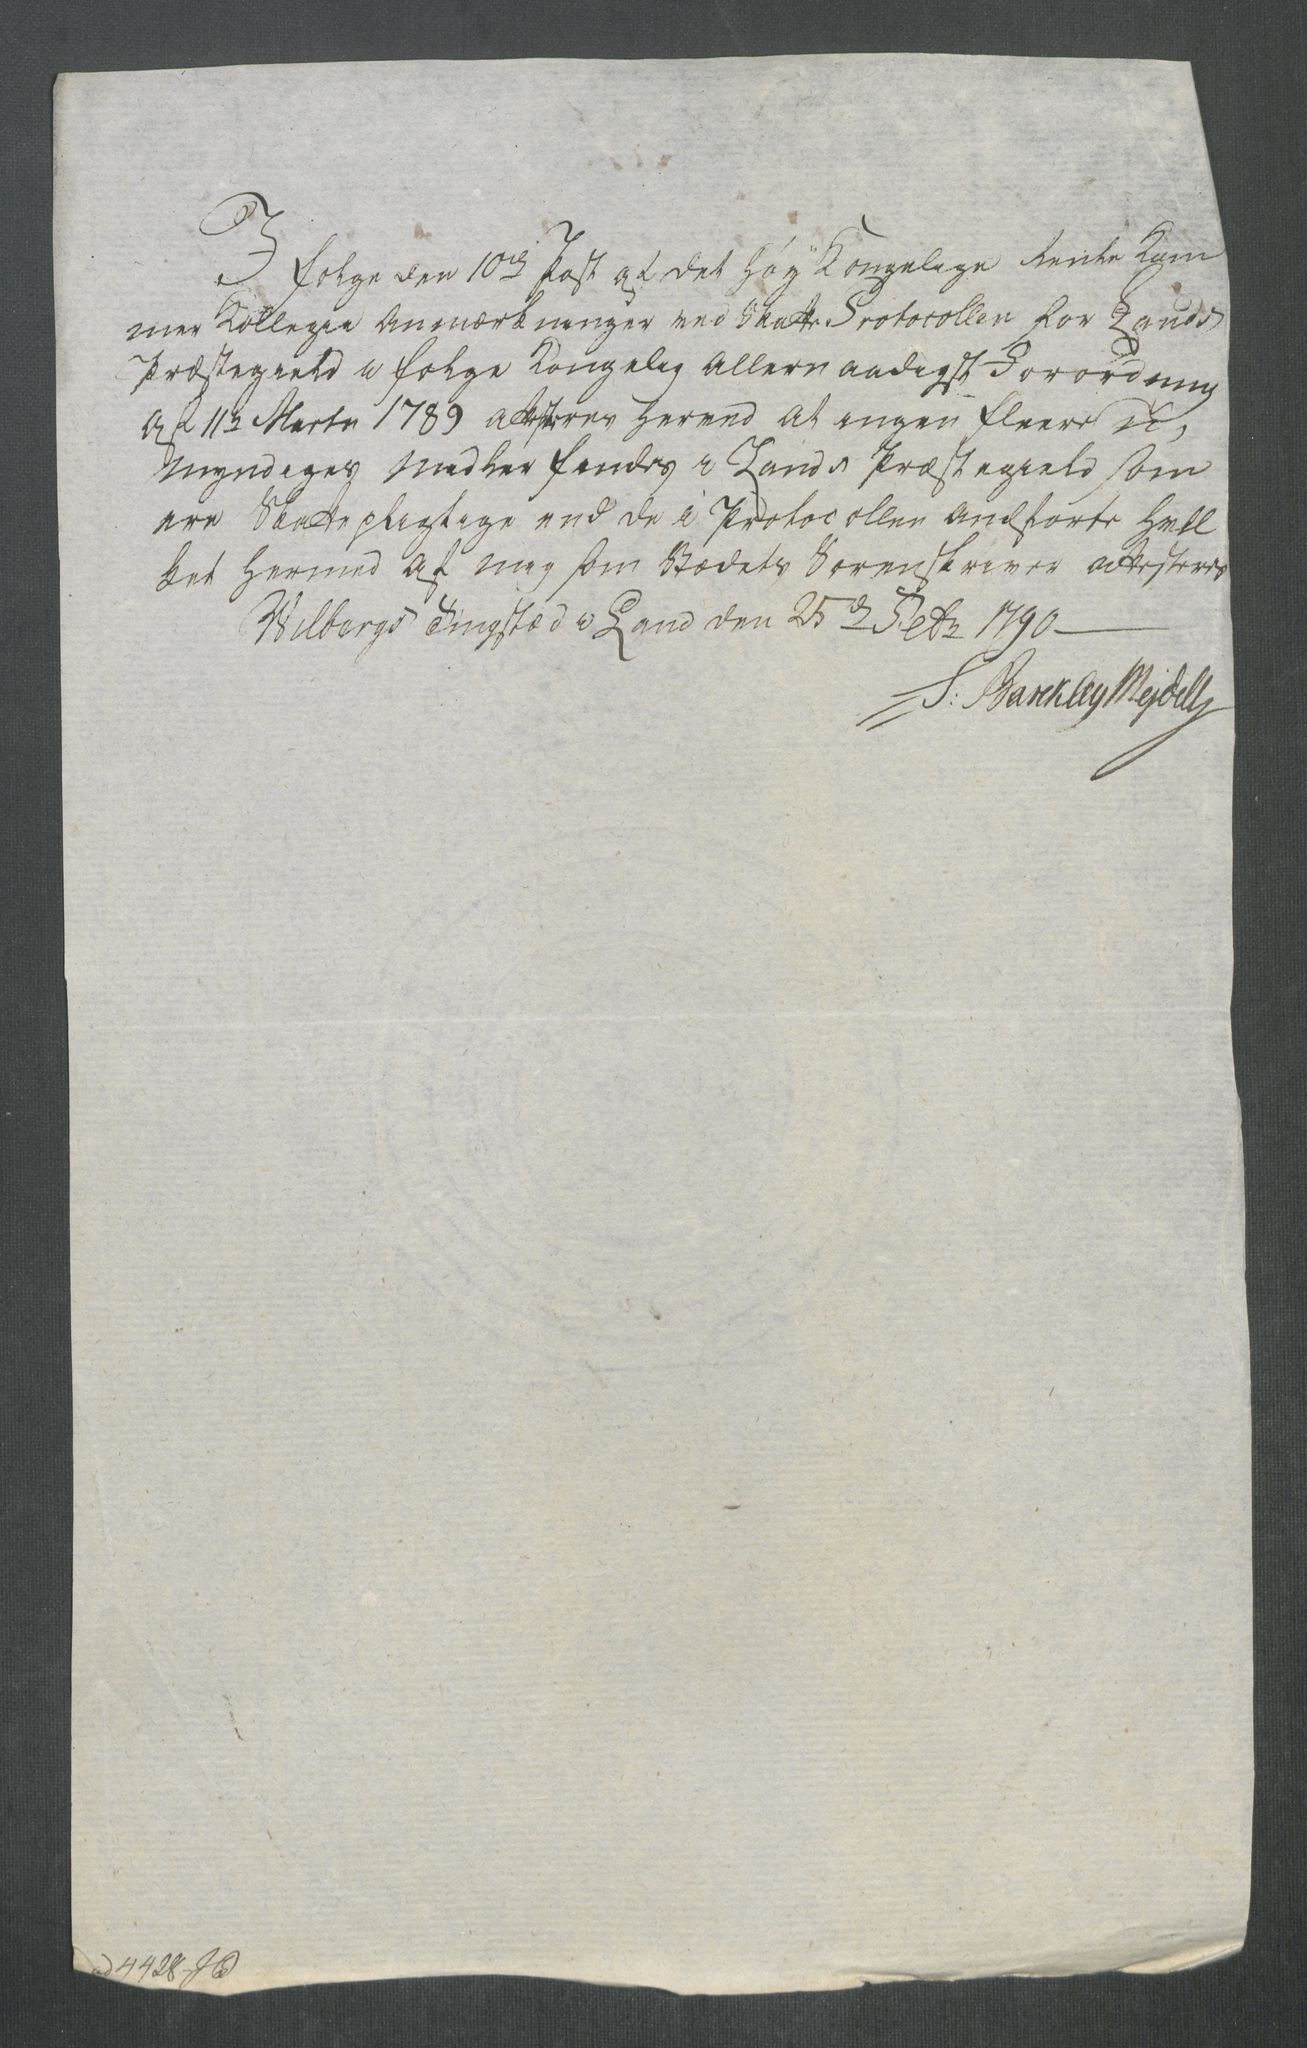 I følge den 10de Post af det høy Kongelige Rente Kam
mer Collegie Anmærkninger ved Skatte Protocollen for Lands
Præstegield i følge Kongelig Allernaadigst Forordning
af 11te Martii 1789 attesteres herved at ingen fleere U,
myndiges Midler findes i Lands Præstegield som
ere Skattepligtige end de i Protocollen Andførte hvil
ket hermed af mig som Stædets Sorenskriver attesteres
Wilbergs Tingstæd i Land den 25de Febr 1790
S: Barckley Mejdell
ad 4428